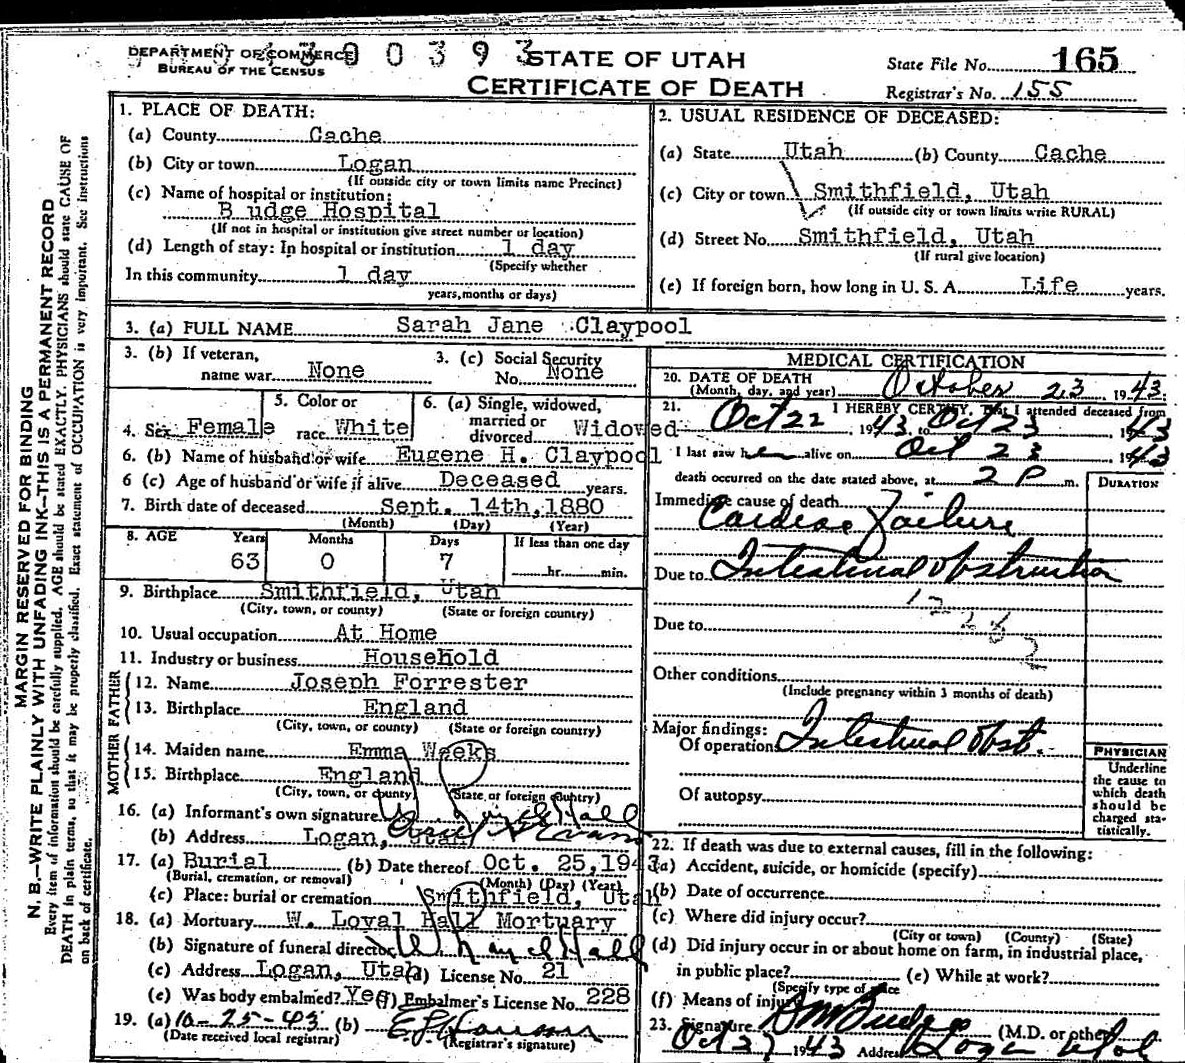 DEPARTMENT OF COMMERCE
BUREAU OF THE CENSUS
0 0 3 9 3
STATE OF UTAH
CERTIFICATE OF DEATH
State File No. 165
Registrar's No. 155
MARGIN RESERVED FOR BINDING
N. B.—WRITE PLAINLY WITH UNFADING INK—THIS IS A PERMANENT RECORD
Every item of information should be carefully supplied. AGE should be stated EXACTLY. PHYSICIANS should state CAUSE OF
DEATH in plain terms, so that it may be properly classified. Exact statement of OCCUPATION is very important. See instructions
on back of certificate.
1. PLACE OF DEATH:
(a) County Cache
(b) City or town Logan
(If outside city or town limits name Precinct)
(c) Name of hospital or institution:
B udge Hospital
(If not in hospital or institution give street number or location)
(d) Length of stay: In hospital or institution 1 day
(Specify whether
In this community 1 day
years, months or days)
2. USUAL RESIDENCE OF DECEASED:
(a) State Utah (b) County Cache
(c) City or town Smithfield, Utah
(If outside city or town limits write RURAL)
(d) Street No. Smithfield, Utah
(If rural give location)
(e) If foreign born, how long in U. S. A. Life years.
3. (a) FULL NAME Sarah Jane Claypool
3. (b) If veteran,
name war None
3. (c) Social Security
No. None
4. Sex Female
5. Color or
race White
6. (a) Single, widowed,
married or
divorced Widowed
6. (b) Name of husband or wife Eugene H. Claypool
6 (c) Age of husband or wife if alive Deceased years.
7. Birth date of deceased Sept. 14th, 1880
(Month) (Day) (Year)
8. AGE Years Months Days If less than one day
63 0 7 hr. min.
9. Birthplace Smithfield, Utah
(City, town, or county) (State or foreign country)
10. Usual occupation At Home
11. Industry or business Household
FATHER
12. Name Joseph Forrester
13. Birthplace England
(City, town, or county) (State or foreign country)
MOTHER
14. Maiden name Emma Weeks
15. Birthplace England
(City, town, or county) (State or foreign country)
16. (a) Informant's own signature
(b) Address Logan, Utah
17. (a) Burial (b) Date thereof Oct. 25, 1943
(Burial, cremation, or removal) (Month) (Day) (Year)
(c) Place: burial or cremation Smithfield, Utah
18. (a) Mortuary W. Loyal Hall Mortuary
(b) Signature of funeral director W. Loyal Hall
(c) Address Logan, Utah (d) License No. 21
(e) Was body embalmed? Yes (f) Embalmer's License No. 228
19. (a) 10-25-43 (b)
(Date received local registrar) (Registrar's signature)
MEDICAL CERTIFICATION
20. DATE OF DEATH
(Month, day, and year) October 23 1943
21. I HEREBY CERTIFY, That I attended deceased from
Oct 22, 1943, to Oct 23, 1943
I last saw her alive on Oct 23 1943
death occurred on the date stated above, at 2 P m.
DURATION
Immediate cause of death
Cardiac Failure
Due to Intestinal obstruction
122 b 2
Due to
Other conditions
(Include pregnancy within 3 months of death)
Major findings:
Of operation Intestinal Obst.
Of autopsy
PHYSICIAN
Underline
the cause to
which death
should be
charged sta-
tistically.
22. If death was due to external causes, fill in the following:
(a) Accident, suicide, or homicide (specify)
(b) Date of occurrence
(c) Where did injury occur?
(City or town) (County) (State)
(d) Did injury occur in or about home on farm, in industrial place,
in public place? (e) While at work?
(Specify type of place
(f) Means of injury
23. Signature Budge (M.D. or other)
Oct 27 1943 Address Logan Utah